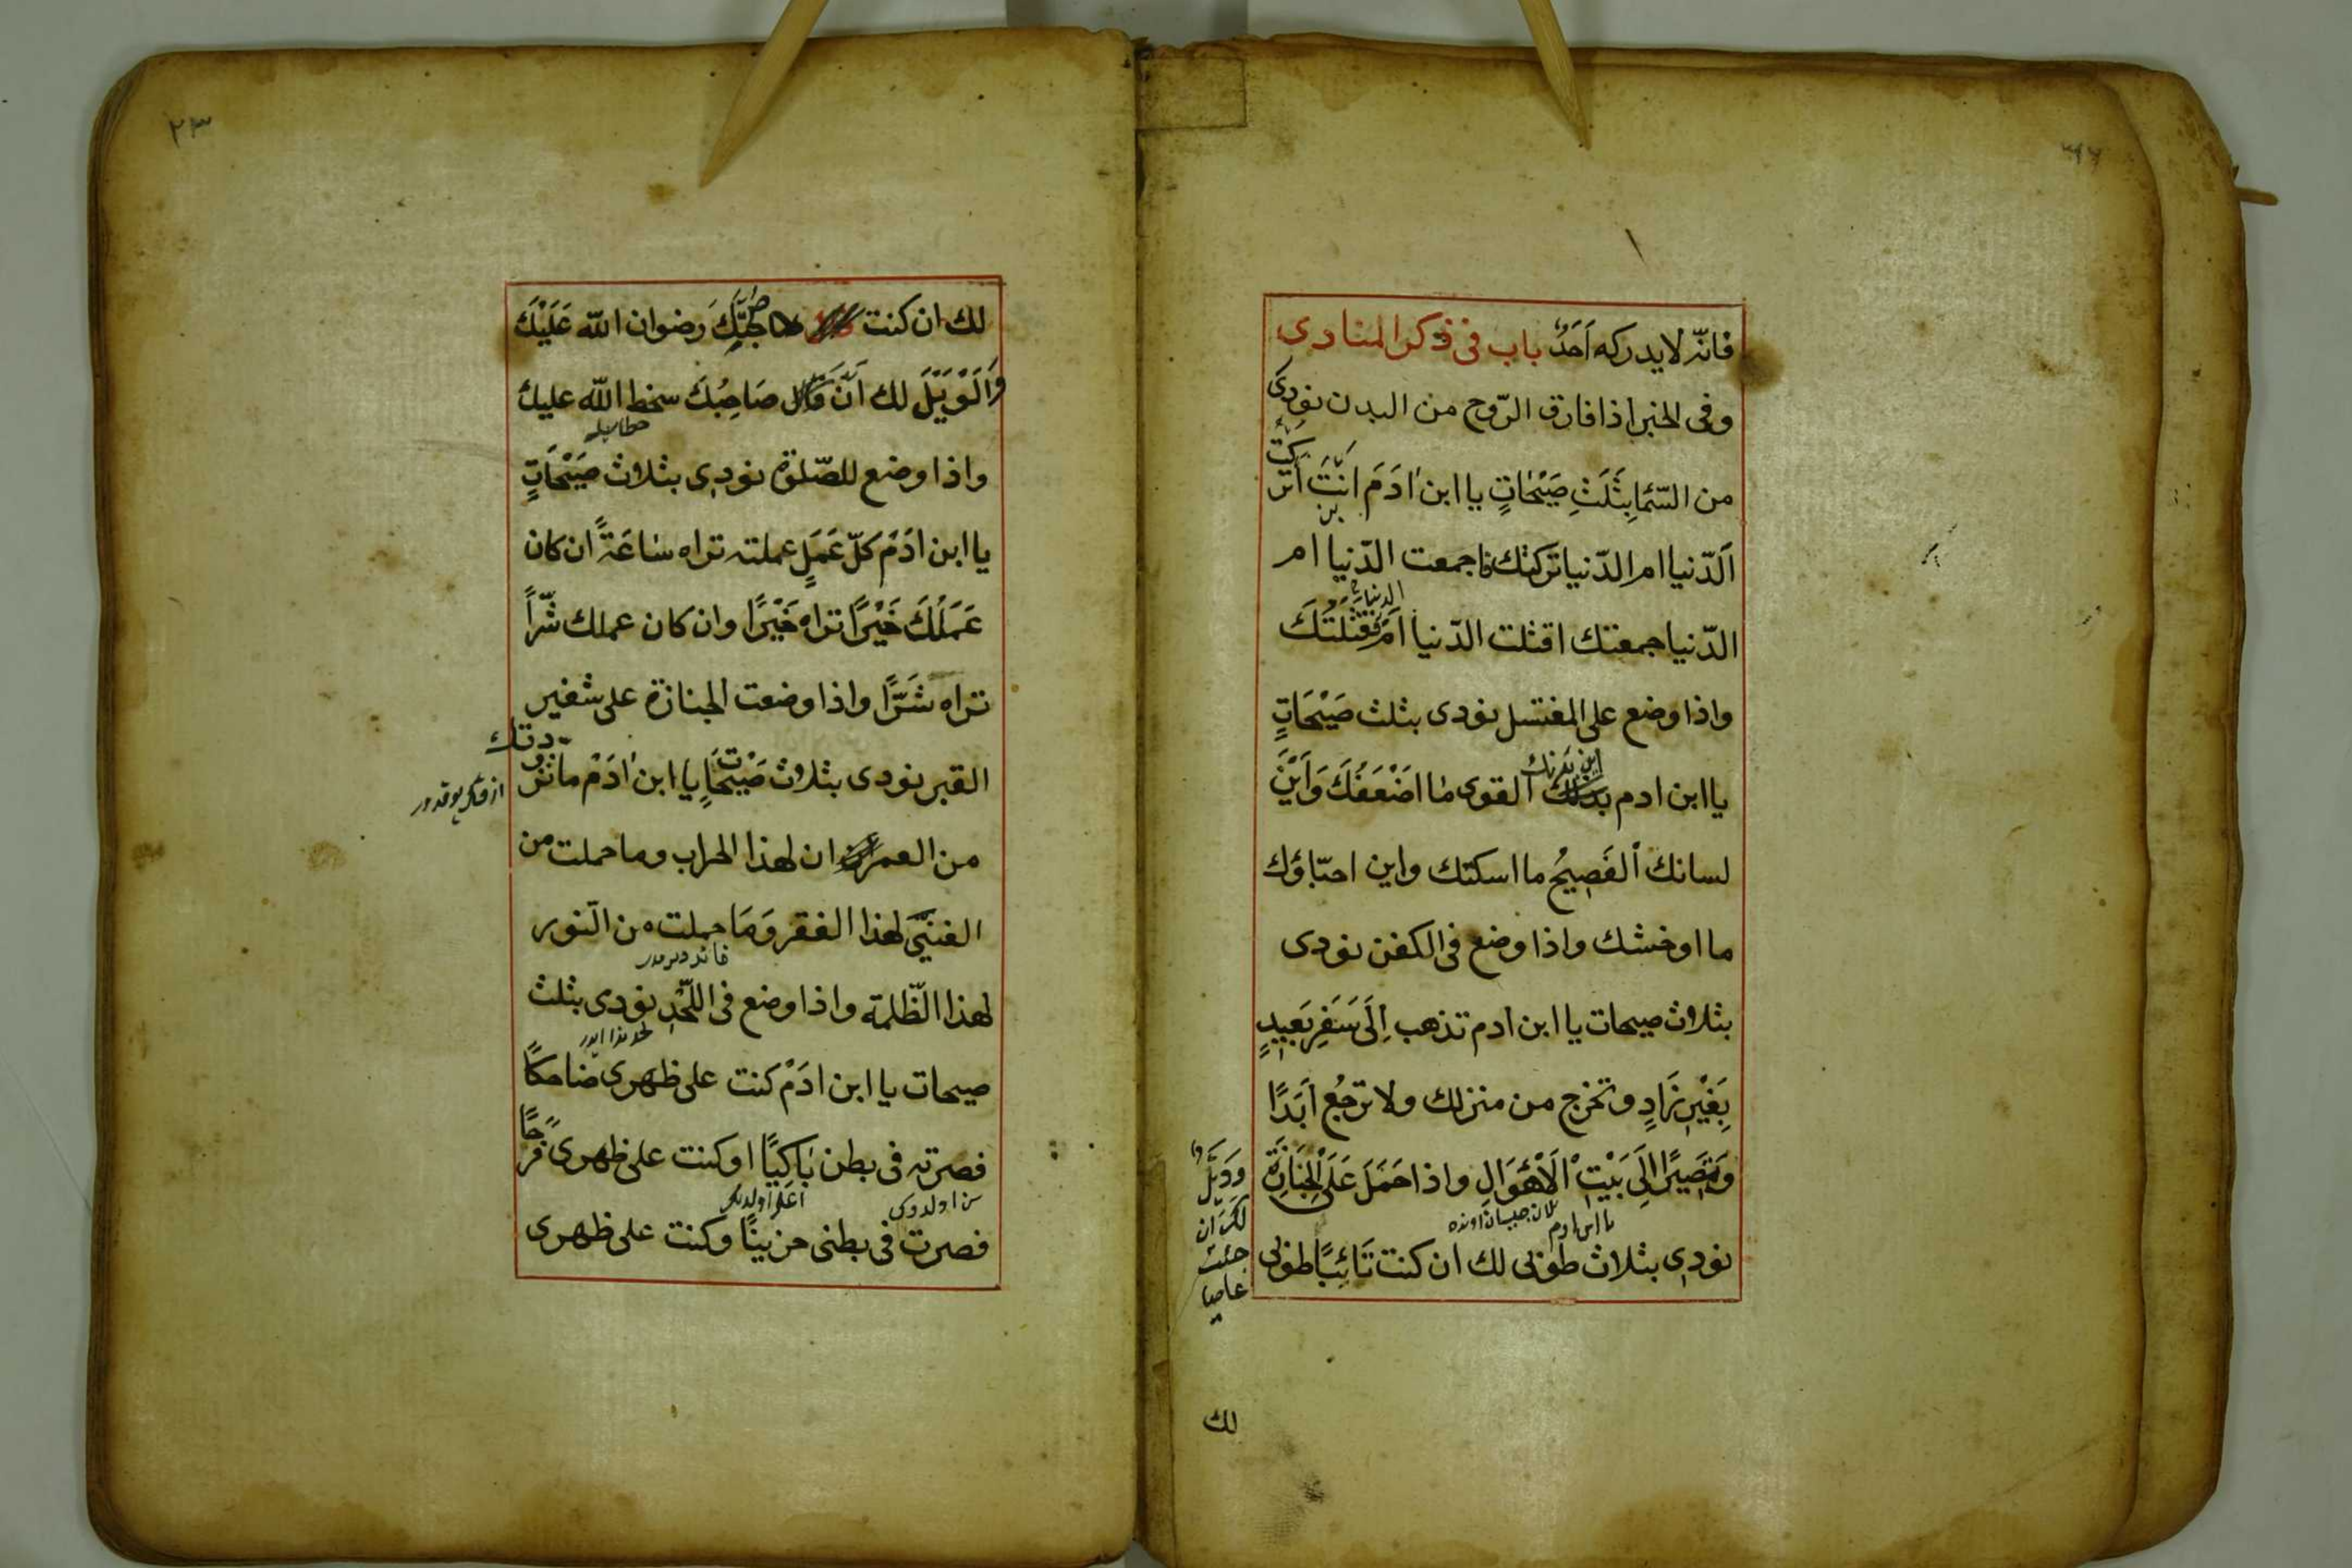 فانّه لا يدركه اَحَدٌ باب فى ذكر المنادى
وفى الخبر اذا فارق الرّوح من البدن نودى
من السّما بِثَلَثِ صَيْحَاتٍ يا ابن ادَمَ اَنْتَ اَتَرَكْتَ
اَلدّنيا ام الدّنيا تركتك اجمعت الدّنيا ام
الدّنيا جمعتك اقتلت الدّنيا اَمْ قتلَتْكَ
الدنيا
واذا وضع على المغتسل نودى بثلث صَيْحَاتٍ
يا ابن ادم اين بدنك القوى مٰا اَضْعَفَكَ وَاَيْنَ
لسانك اْلفَصِيحُ ما اسكتك واين احبّاؤك
ما اوحشك واذا وضع فى الكفن نودى
بثلاث صيحات يا ابن ادم تذهب اِلَى سَفَرٍ بَعِيدٍ
بِغَيْرِ زَادٍ وتخرج من منزلك ولا ترجُع اَبَدًا
وَتَصِيرُ اِلَى بَيْتِ اْلاَهْوَالِ واذا حَمَلَ عَلَى اْلجَنَازَةِ
يا ابن ادم
نودى بثلاث طوبى لك ان كنت تَائِبًا طوبى
وَوَيْلٌ
لك ان
جئت
عاصيا
لك
٢٣
لك ان كنت صَاحِبُكَ رضوان اللّه عَلَيْكَ
وَالْوَيْلُ لك اَنْ كَانَ صَاحِبُكَ سخط اللّه عليك
واذا وضع للصّلوة نودى بثلاث صَيْحَاتٍ
يا ابن ادَمَ كلّ عَمَلٍ عملته تراه سٰاعَةً ان كان
عَمَلُكَ خَيْرًا تراه خَيْرًا وان كان عملك شَرّاً
تراه شَرًّا واذا وضعت الجنازة على شفير
القبر نودى بثلاث صَيْحَاتٍ يا ابن ادَمْ ما تزودتك
من العمران لهذا الخراب وما حملت من
الغنىّ لهذا الفقر وَمَا حملت من النّور
لهذا الظّلمة واذا وضع فى اللّحْدِ نودى بثلث
صيحات يا ابن ادَمْ كنت على ظهرى ضاحكًا
فصرته فى بطن بَاكِيًا او كنت على ظهرى فَرِحًا
فصرت فى بطنى حزينًا وكنت على ظهرى